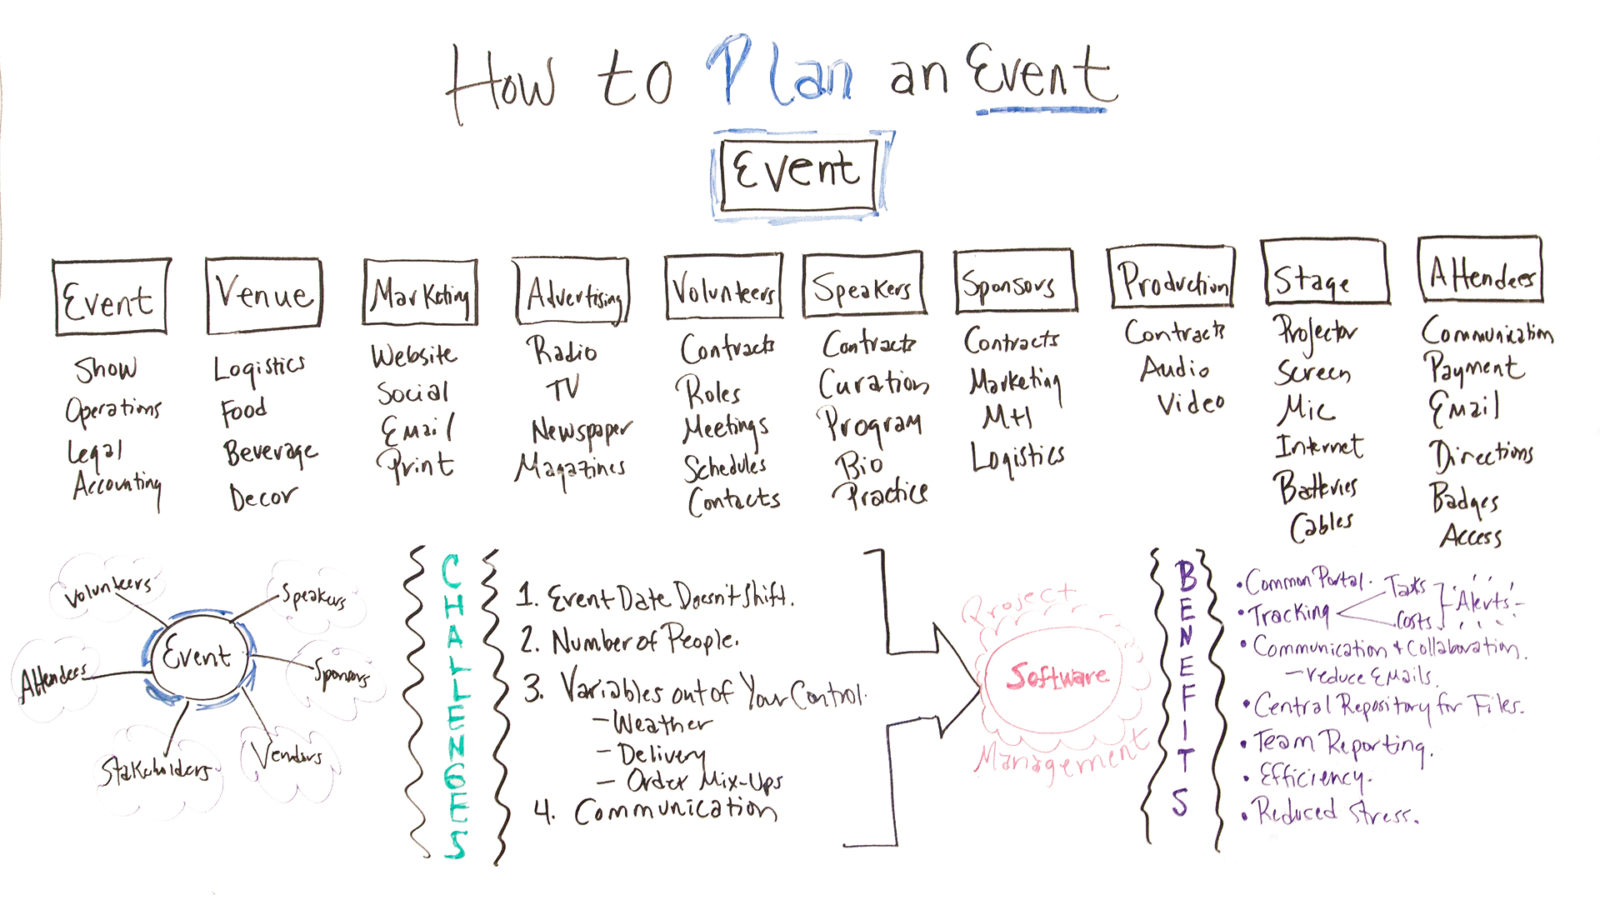 How to Plan an Event
Event
Event
Show
Operations
Legal
Accounting
Venue
Logistics
Food
Beverage
Decor
Marketing
Website
Social
Email
Print
Advertising
Radio
TV
Newspaper
Magazines
Volunteers
Contracts
Roles
Meetings
Schedules
Contacts
Speakers
Contracts
Curation
Program
Bio
Practice
Sponsors
Contracts
Marketing
Mtl
Logistics
Production
Contracts
Audio
Video
Stage
Projector
Screen
Mic
Internet
Batteries
Cables
Attendees
Communication
Payment
Email
Directions
Badges
Access
Event
Volunteers
Speakers
Attendees
Sponsors
Stakeholders
Vendors
CHALLENGES
1. Event Date Doesn't Shift.
2. Number of People.
3. Variables out of Your Control.
- Weather
- Delivery
- Order Mix-Ups
4. Communication
Project
Software
Management
BENEFITS
• Common Portal.
• Tracking
Tasks
Costs
Alerts
• Communication + Collaboration.
- reduce Emails.
• Central Repository for Files.
• Team Reporting.
• Efficiency.
• Reduced Stress.